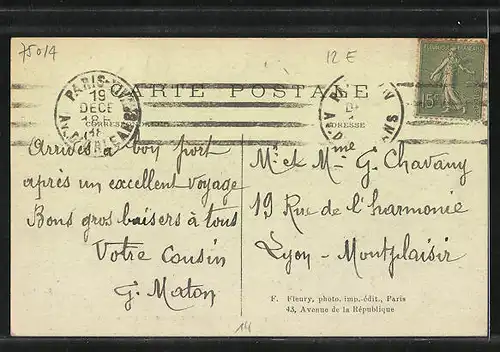 75014
12 E
CARTE POSTALE
PARIS
19
DECE
18
CORRES
ADRESSE
15c
Arrivés à bon port
après un excellent voyage
Bons gros baisers à tous
Votre Cousin
G. Maton
Mr et Mme G. Chavany
19 Rue de l'harmonie
Lyon - Montplaisir
F. Fleury, photo. imp.-édit., Paris
43, Avenue de la République
14